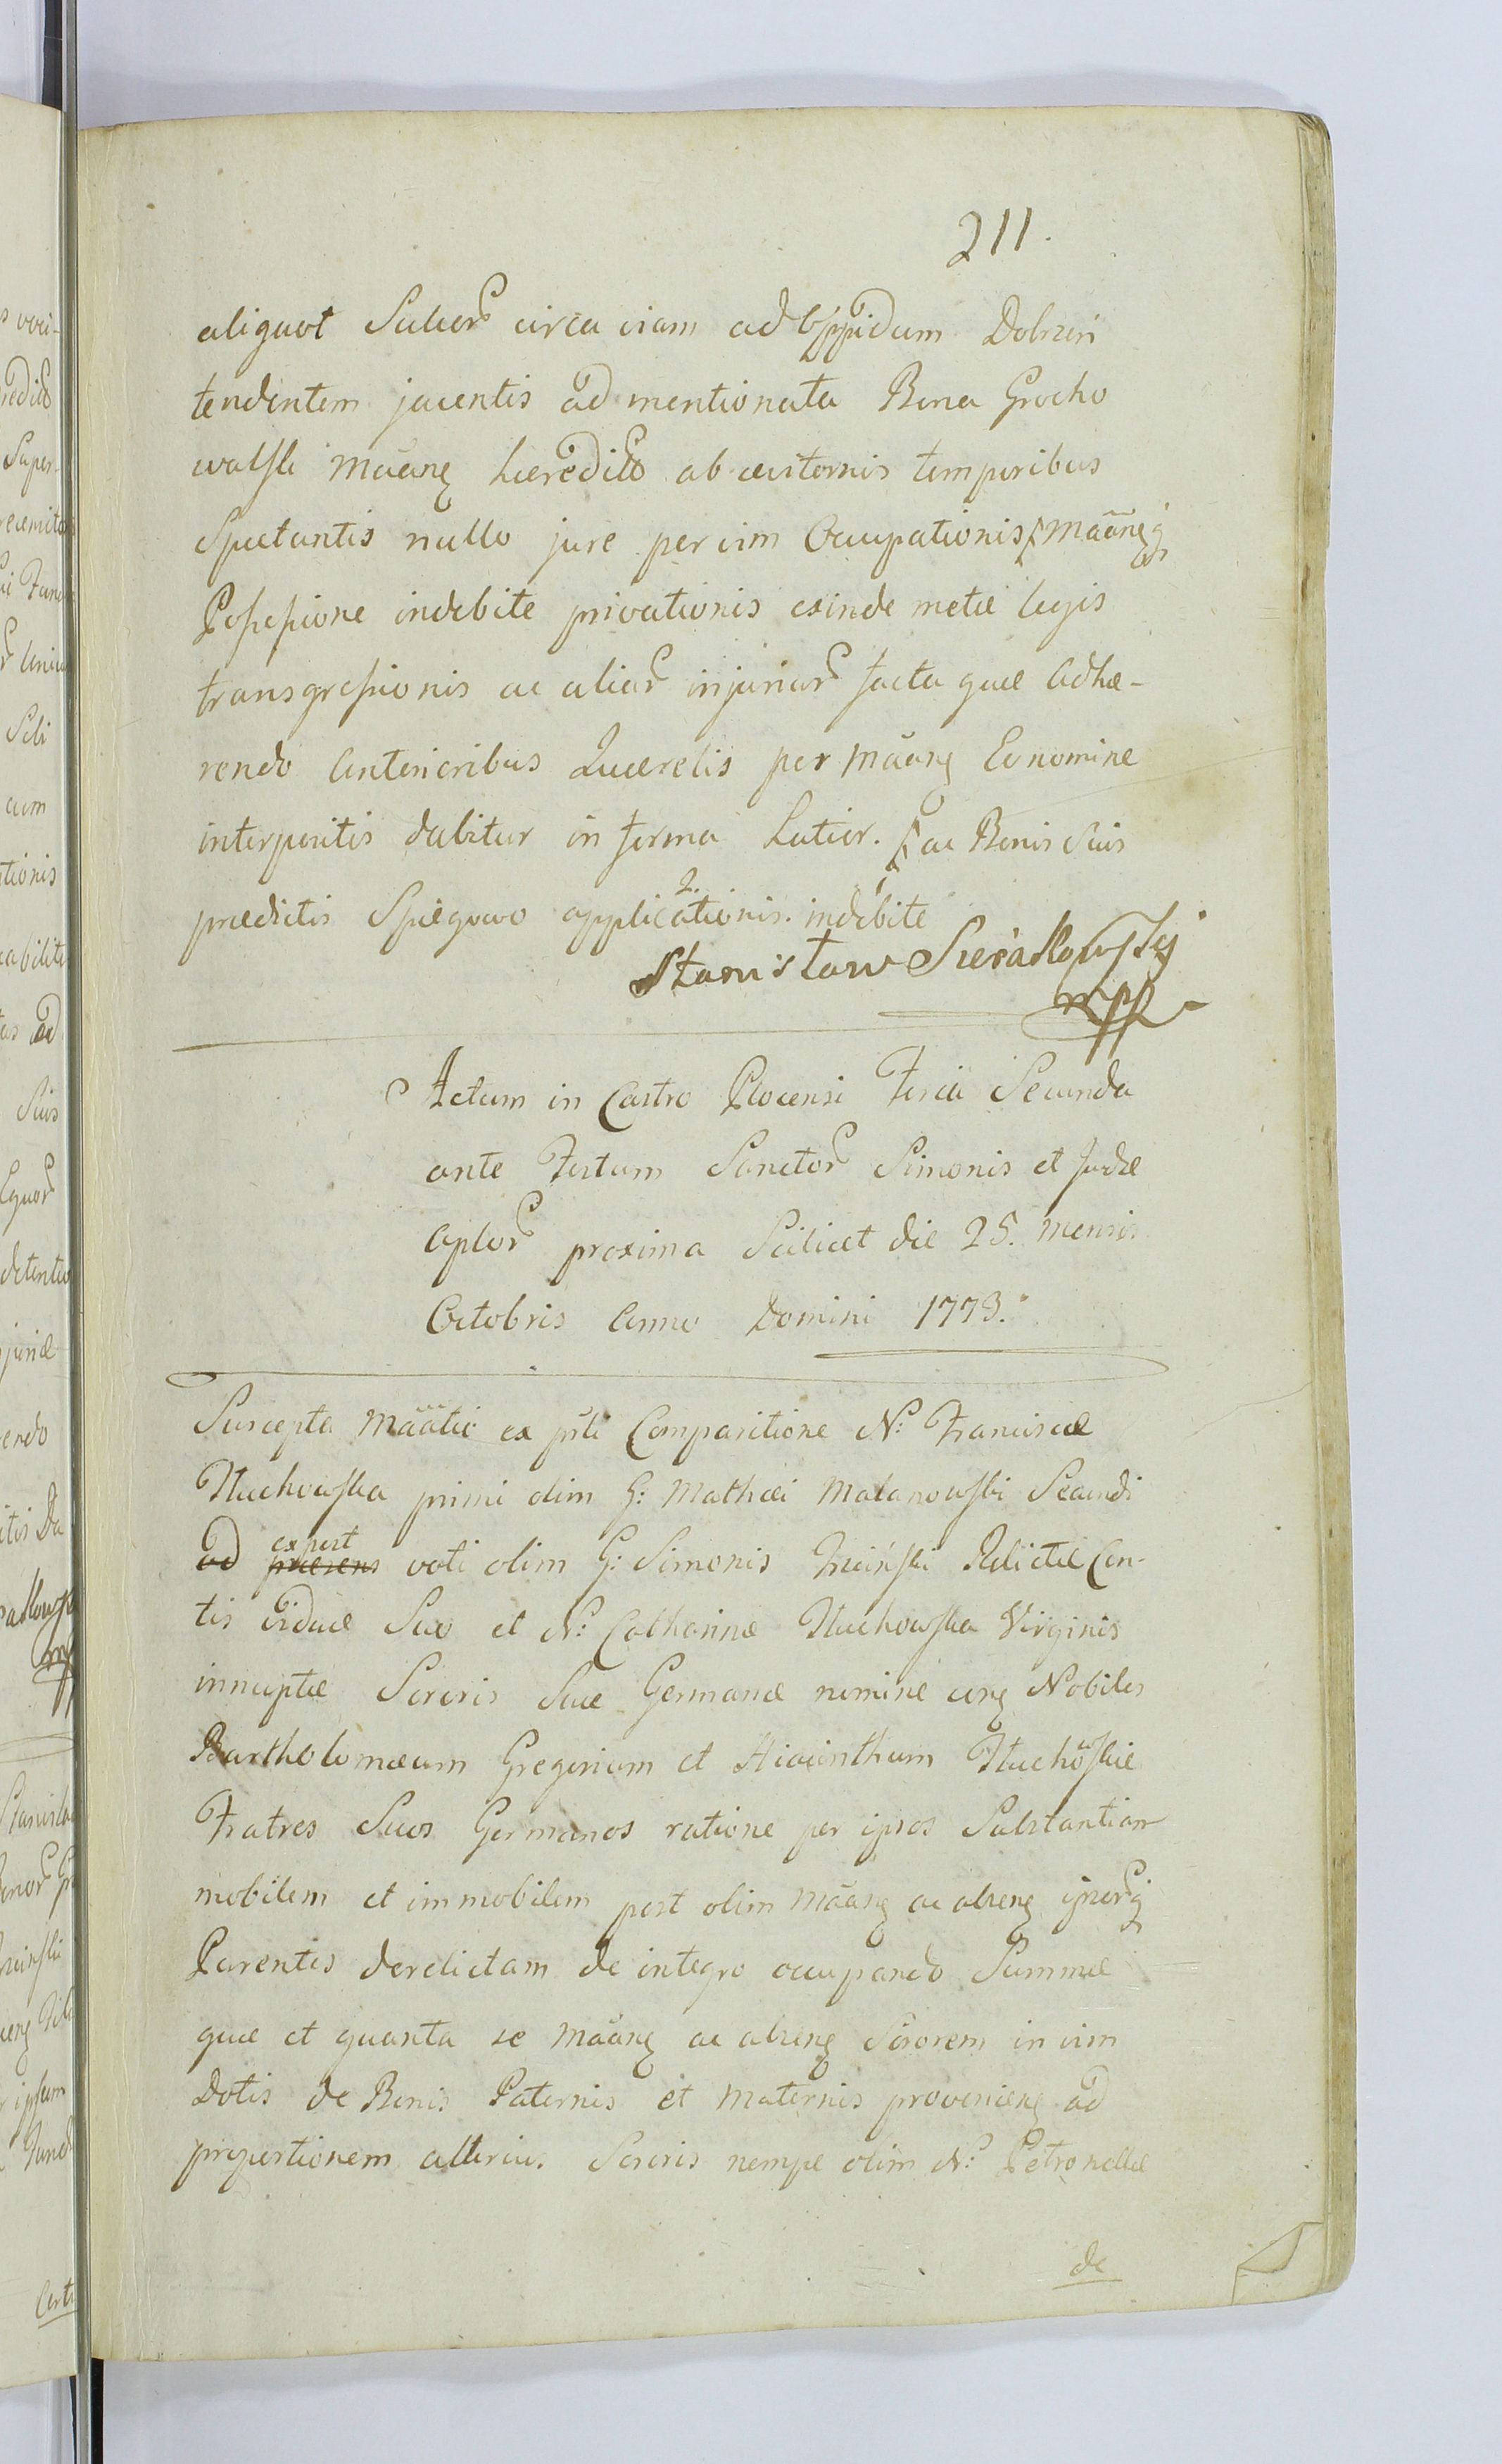 211.
aliquot Sulcor circa viam ad Oppidum Dobrzin
tendentem jacentis ad mentionata Bona Grocho
walski Mãang hæredito ab æviternis temporibus
Spectantis nullo jure per vim Occupationis, Mãang q
Possessione indebite privationis exinde metæ legis
transgressionis ac aliar injuriar facta quæ Adhæ-
rendo Anterioribus Querelis per Mãang Eo nomine
interpositis dabitur in forma Latior. ac Bonis Suis
prædictis Spiegowo applicationis. 2. indebite
Stanisław Sierakowsky
mpp
Actum in Castro Plocensi Feria Secunda
ante Festum Sanctor Simonis et Judæ
Aplor proxima Scilicet die 25. mensis
Octobris Anno Domini 1773.
Suscepta Mãatio ex pñti Comparitione N: Franciscæ
Tłuchowska primi olim G: Mathæi Malanowski Secundi
ad expost præsens voti olim G: Simonis Relictæ Con-
tis viduæ Suo et N: Catharinæ Tłuchowska Virginis
innuptæ Sororis Suæ Germanæ nomine cong Nobiles
Bartholomæum Gregorium et Hiacinthum Tłuchowskie
Fratres Suos Germanos ratione per ipsos Substantiam
mobilem et immobilem post olim Mãang ac abseng ipsorq
Parentes derelictam de integro occupando Summæ
quæ et quanta se Mãang ac abseng Sororem in vim
Dotis de Bonis Paternis et Maternis provenieng ad
proportionem alterius Sororis nempe olim N: Petronellæ
de